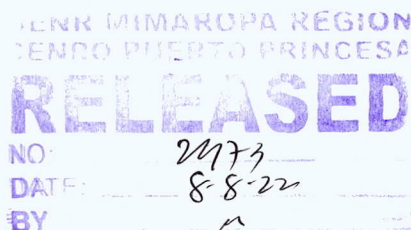 DENR MIMAROPA REGION
CENRO PUERTO PRINCESA
RELEASED
NO:
DATE: 8-8-22
BY